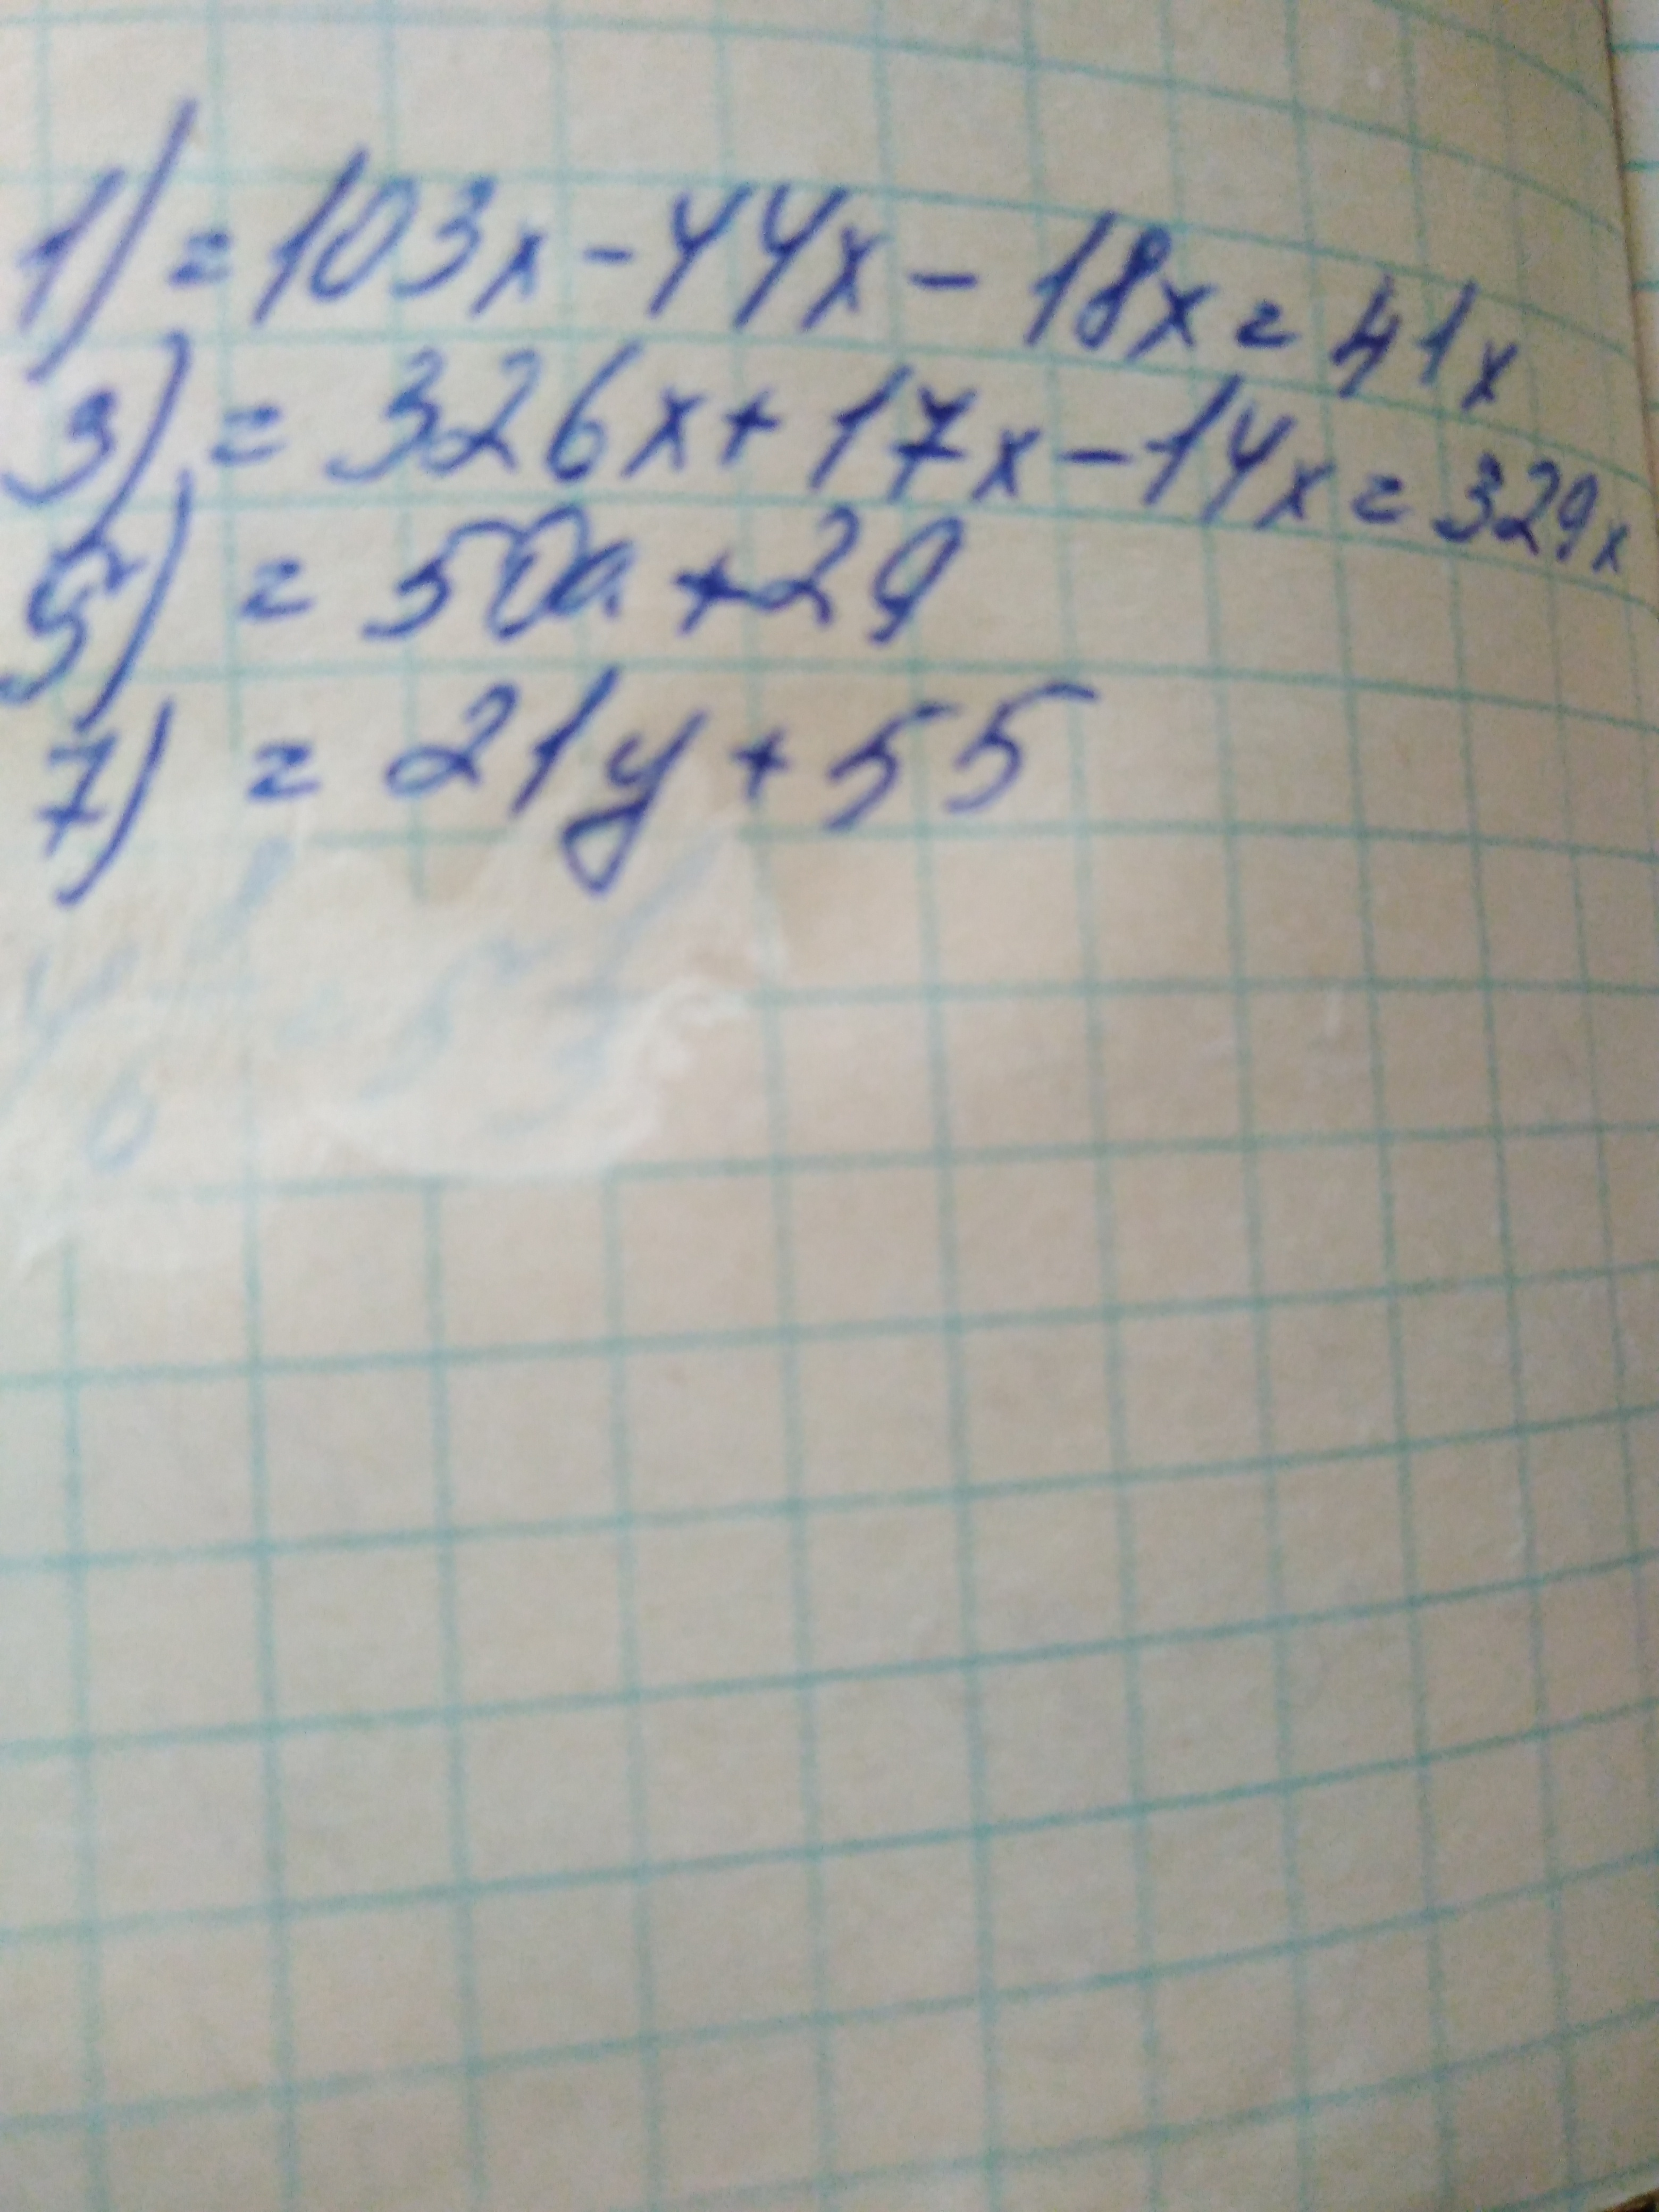 1) = 103x - 44x - 18x = 41x
3) = 326x + 17x - 14x = 329x
5) = 50a + 29
7) = 21y + 55